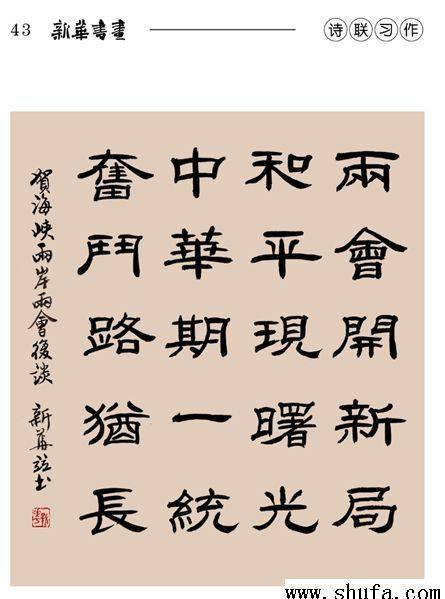 43 新華書畫
诗联习作
兩會開新局
和平現曙光
中華期一統
奮鬥路猶長
賀海峽兩岸兩會復談
新華並书
www.shufa.com